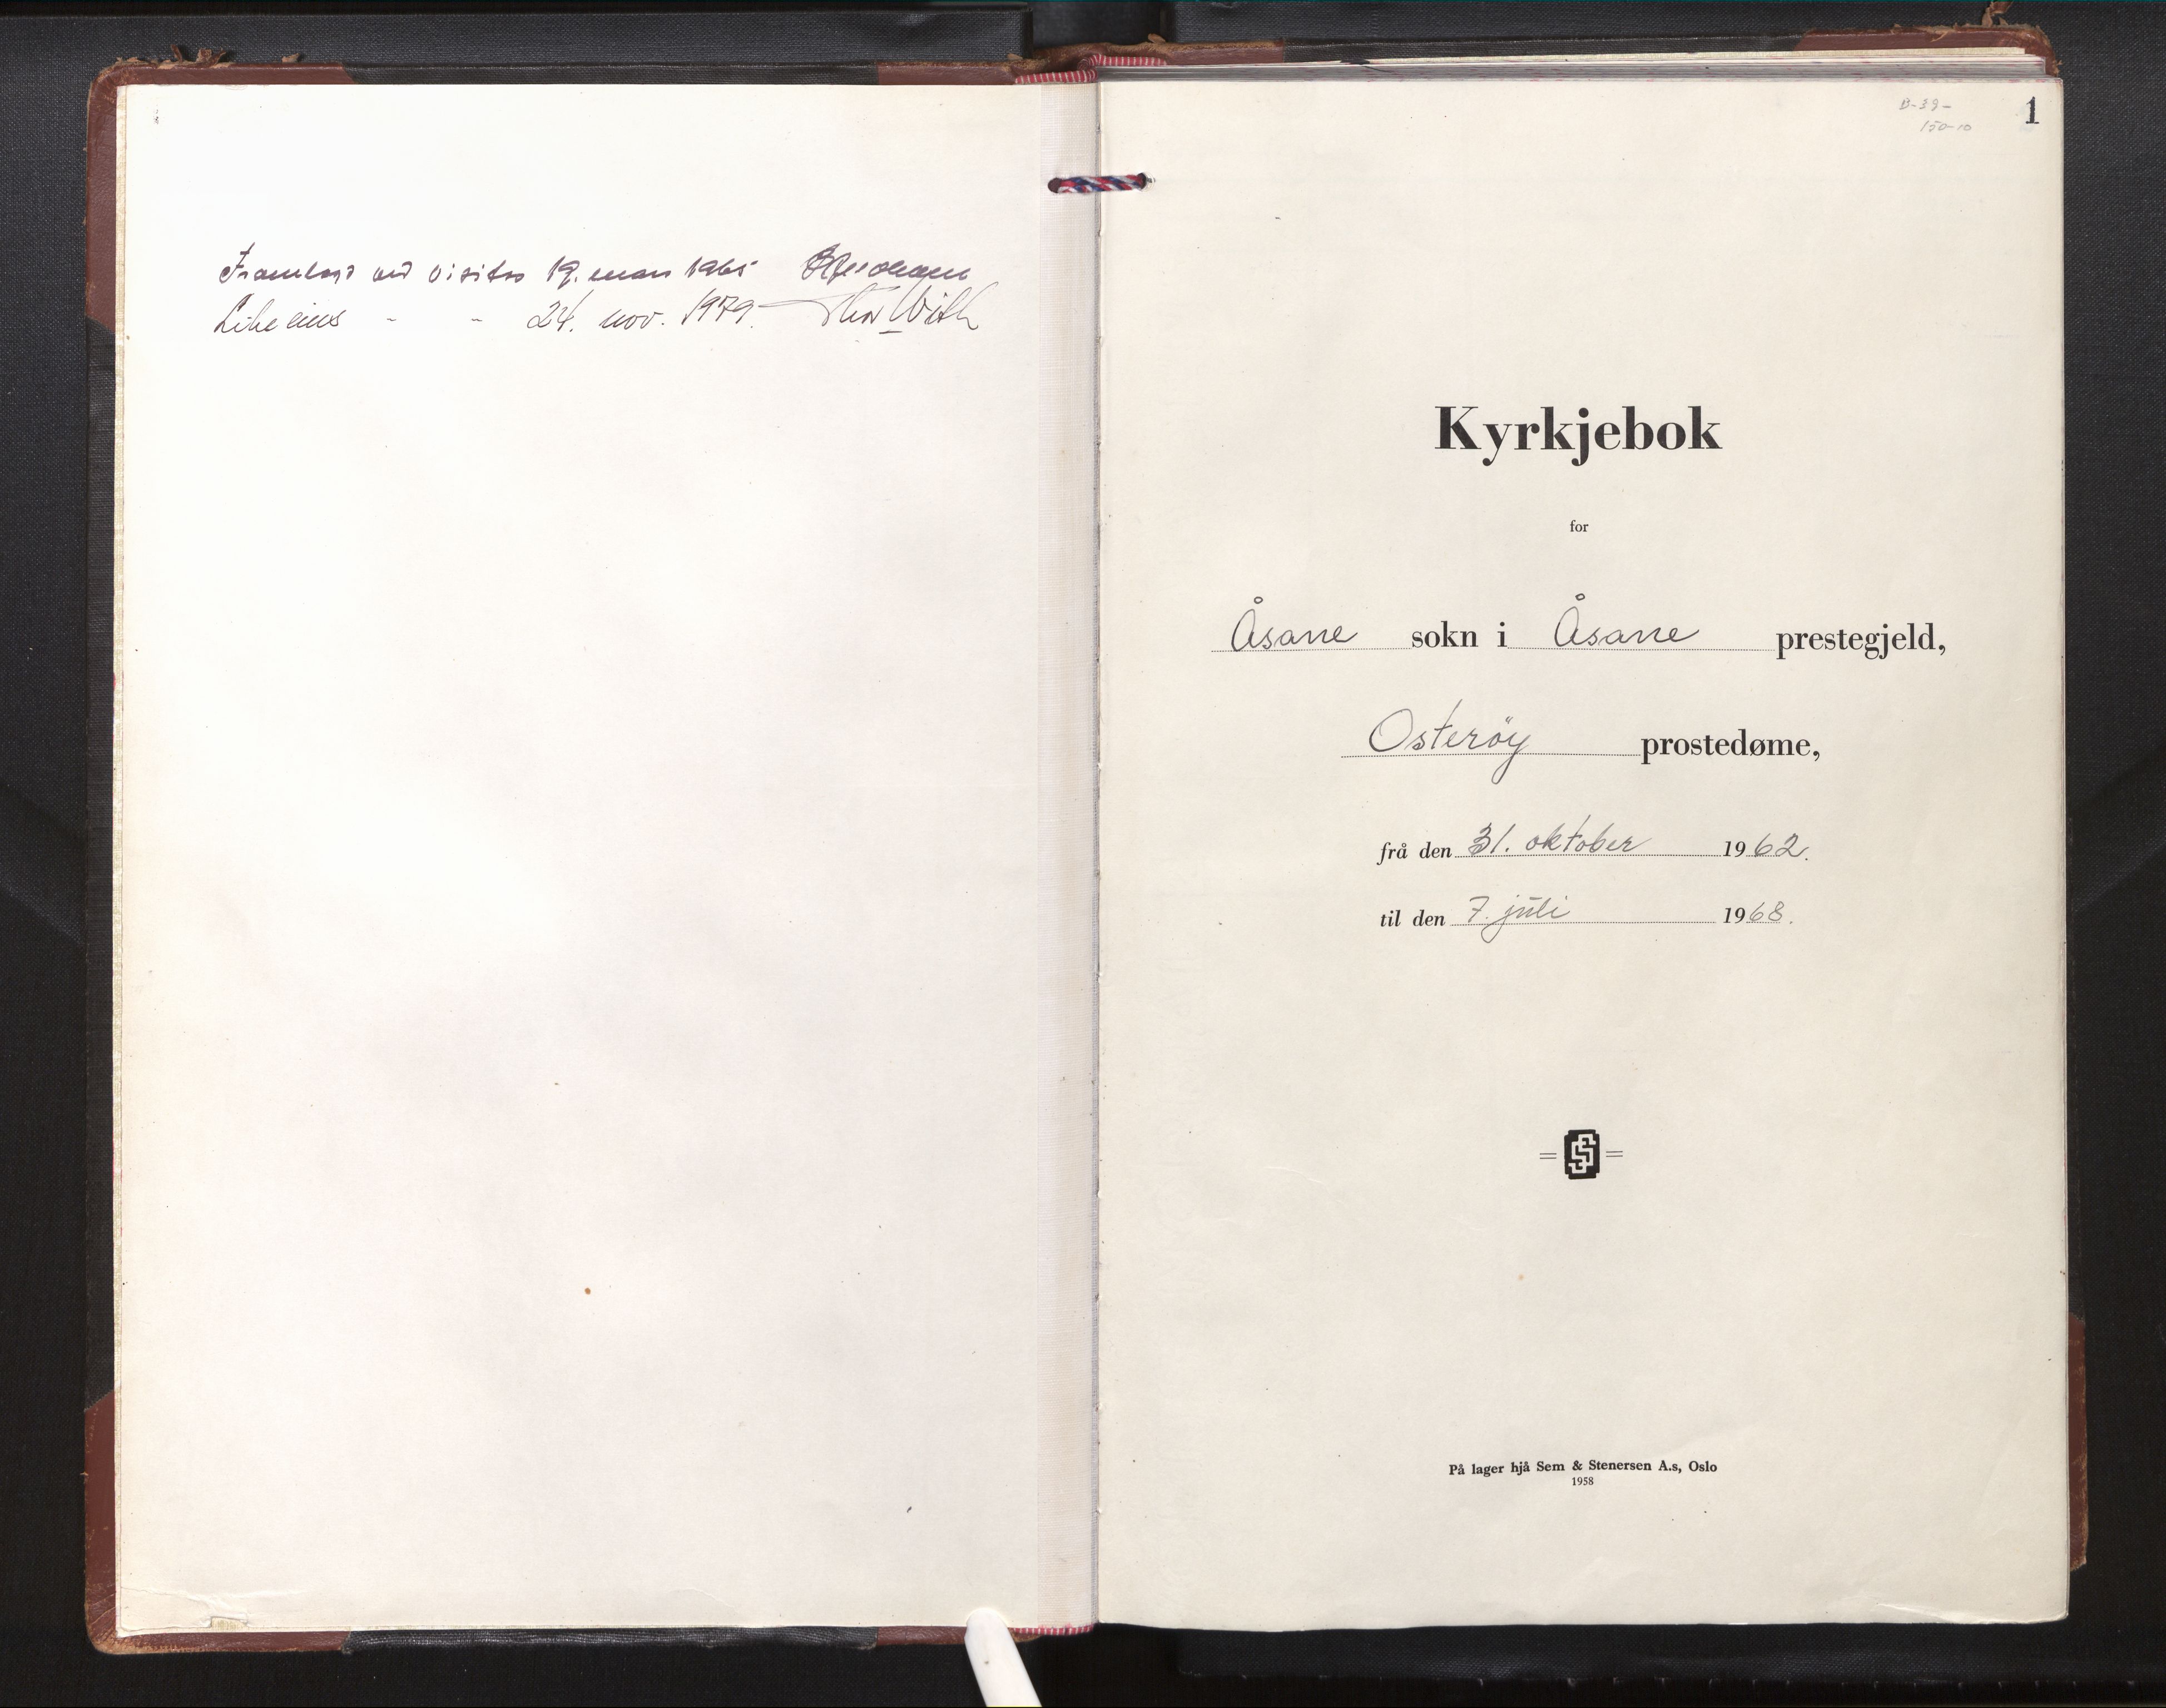 Framlagd ved visitas 19. mars 1965
Likeeins - - 24. nov. 1979. Thor With
B-39-
150-10
1
Kyrkjebok
for
Åsane sokn i Åsane prestegjeld,
Osterøy prostedøme,
frå den 31. oktober 1962.
til den 7. juli 1968.
SS
På lager hjå Sem & Stenersen A.s, Oslo
1958